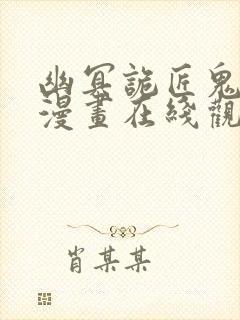 幽冥詭匠鬼
漫畫在綫觀
肖某某